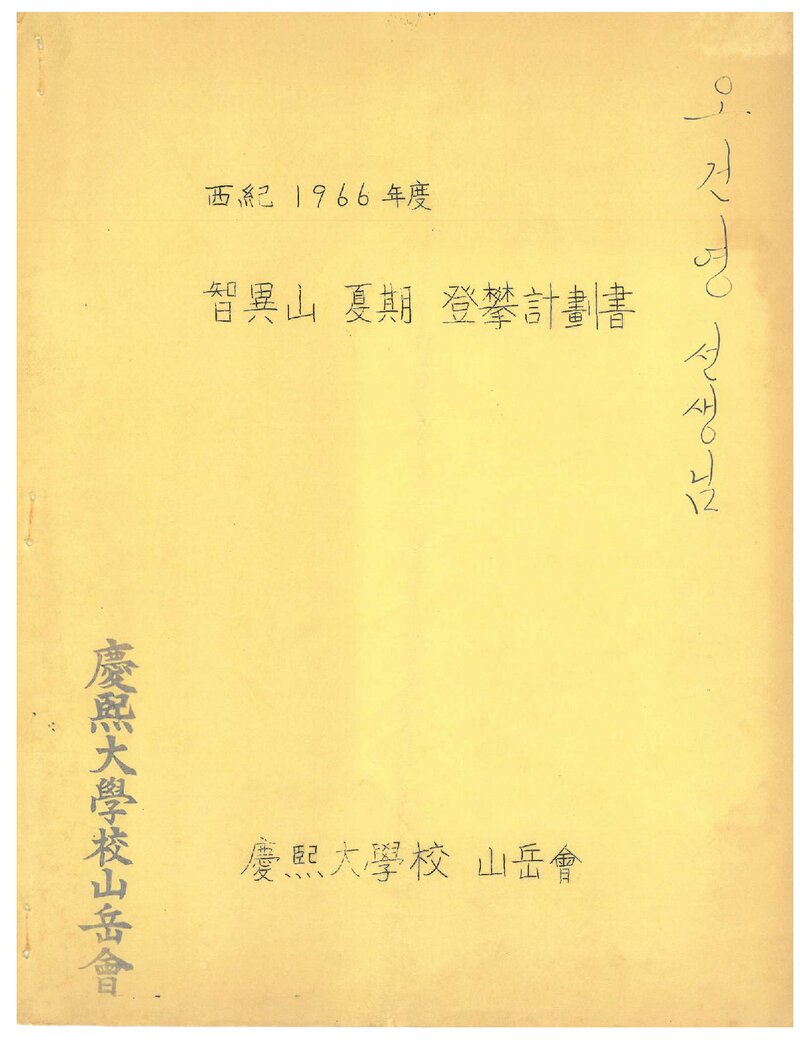 西紀 1966 年度
智異山 夏期 登攀計劃書
오건영 선생님
慶熙大學校山岳會
慶熙大學校 山岳會